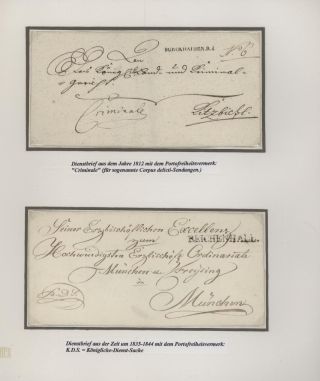 Den
BURGHAUSEN.R.4
N° 6
Das Königl. Land- und Criminal-
gericht
Criminale
Kitzbichl.
Dienstbrief aus dem Jahre 1812 mit dem Portofreiheitsvermerk:
"Criminale" (für sogenannte Corpus delicti-Sendungen.)
Seiner Erzbischöflichen Excellenz
zum
REICHENHALL.
Hochwürdigsten Erzbischöfl. Ordinariate
München u Freysing
K. D. S.
in
München
Dienstbrief aus der Zeit um 1835-1844 mit dem Portofreiheitsvermerk:
K.D.S. = Königliche-Dienst-Sache